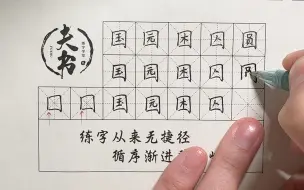 国 园 困 囚 圆
国 园 困 囚
口 口 国 园 困 囚
练字从来无捷径
循序渐进